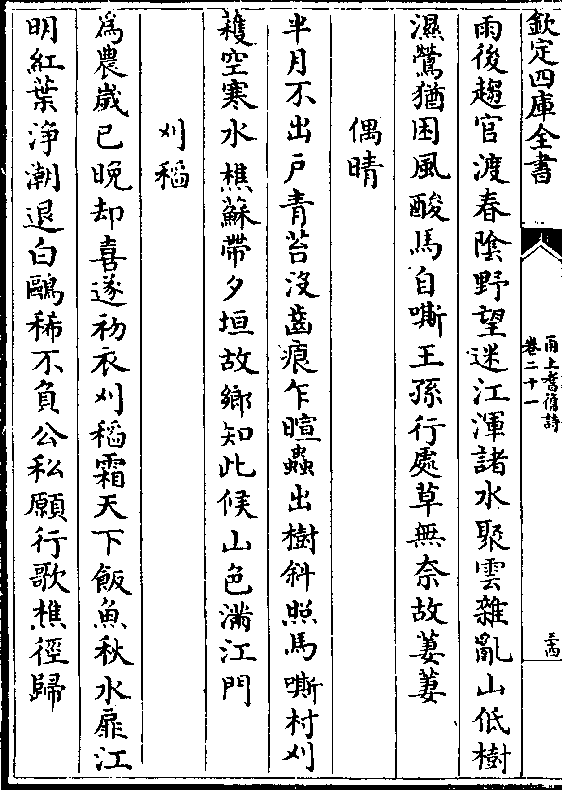 欽定四庫全書
甬上耆舊詩
卷二十一
三十四
雨後趨官渡春陰野望迷江渾諸水聚雲雜亂山低樹
濕鶯猶困風酸馬自嘶王孫行處草無奈故萋萋
偶晴
半月不出戸青苔沒齒痕乍暄蟲出樹斜照馬嘶村刈
穫空寒水樵蘇帶夕垣故鄉知此候山色滿江門
刈稻
為農歲已晚却喜遂初衣刈稻霜天下飯魚秋水扉江
明紅葉淨潮退白鷗稀不負公私願行歌樵徑歸